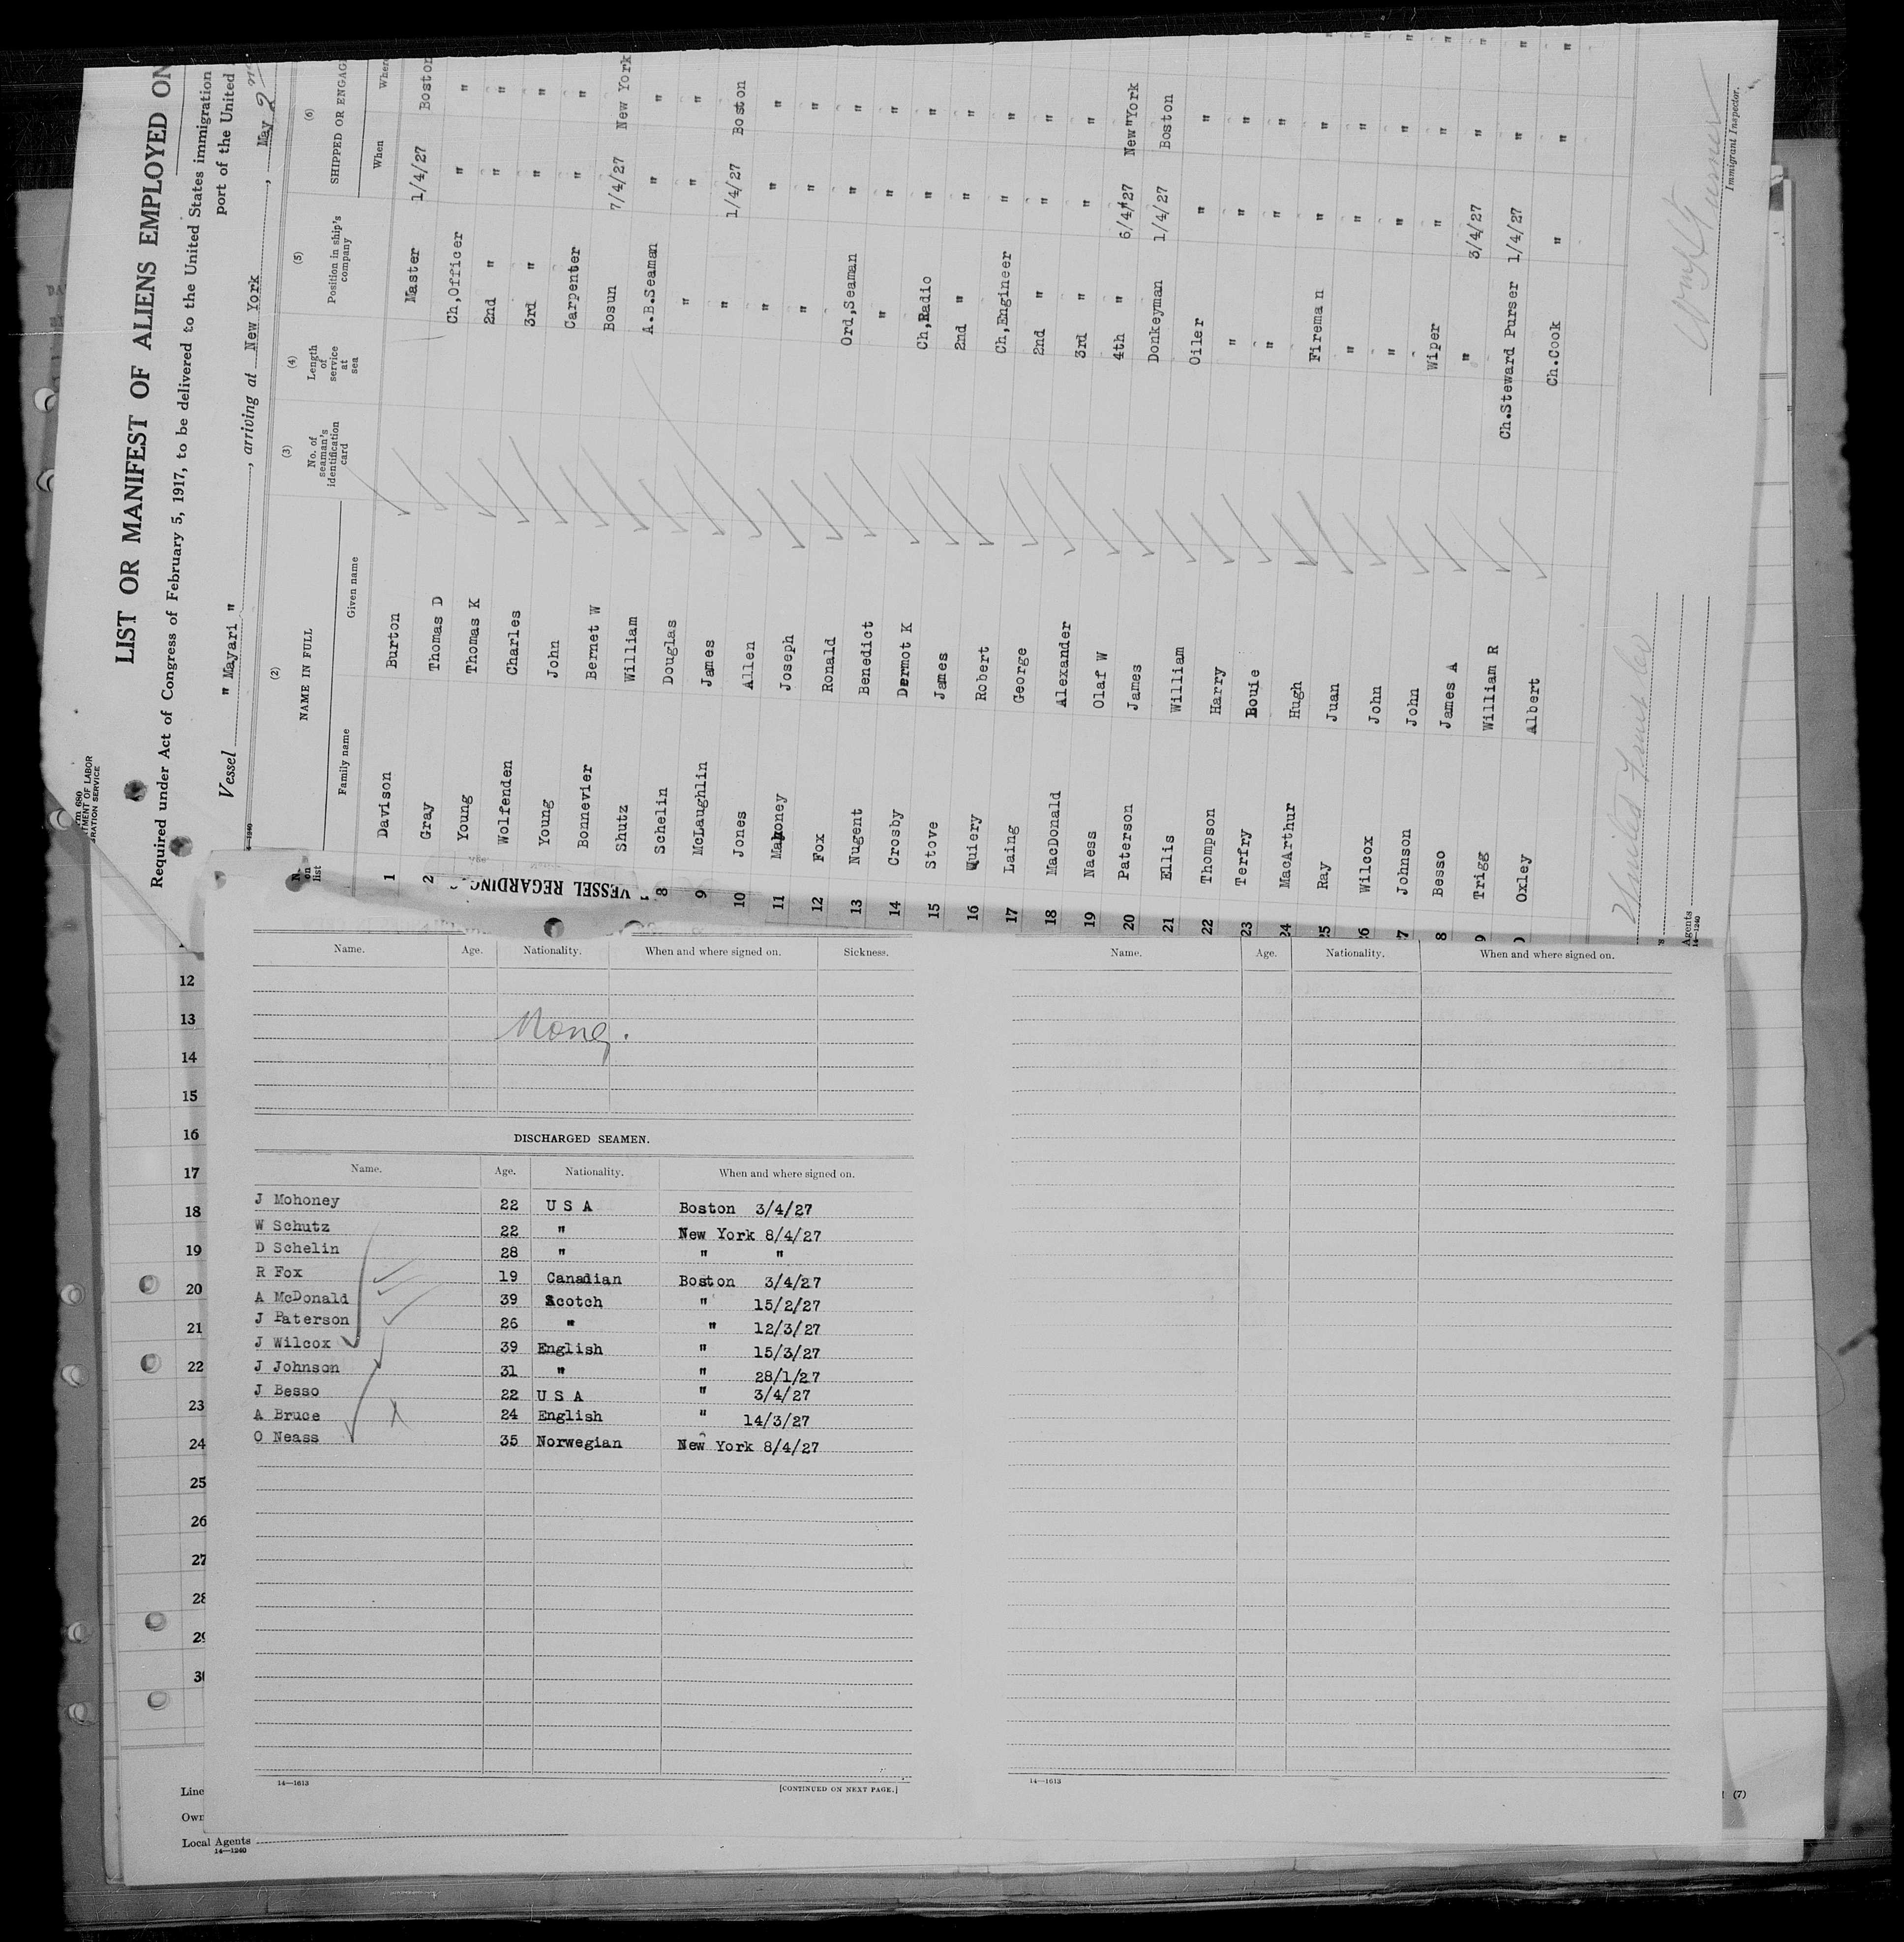 LIST OR MANIFEST OF ALIENS EMPLOYED ON
Required under Act of Congress of February 5, 1917, to be delivered to the United States immigration
port of the United
Vessel " Mayari " , arriving at New York , May 2
(2) (3) (4) (5) (6)
No. on list NAME IN FULL No. of seaman's identification card Length of service at sea Position in ship's company SHIPPED OR ENGAGE
Family name Given name When Where
1 Davison Burton Master 1/4/27 Boston
2 Gray Thomas D Ch,Officer " "
Young Thomas K 2nd " " "
Wolfenden Charles 3rd " " "
Young John Carpenter " "
Bonnevier Bernet W Bosun 7/4/27 New York
Shutz William A.B.Seaman " "
8 Schelin Douglas " " "
9 McLaughlin James " 1/4/27 Boston
10 Jones Allen " " "
11 Mahoney Joseph " " "
12 Fox Ronald Ord,Seaman " "
13 Nugent Benedict " " "
14 Crosby Dermot K Ch,Radio " "
15 Stove James 2nd " " "
16 Quiery Robert Ch,Engineer " "
17 Laing George 2nd " " "
18 MacDonald Alexander 3rd " " "
19 Naess Olaf W 4th " 6/4/27 New York
20 Paterson James Donkeyman 1/4/27 Boston
21 Ellis William Oiler " "
22 Thompson Harry " " "
23 Terfry Louie " " "
24 MacArthur Hugh Fireman " "
25 Ray Juan " " "
26 Wilcox John " " "
7 Johnson John Wiper " "
8 Besso James A " 3/4/27 "
9 Trigg William R Ch.Steward Purser 1/4/27 "
Oxley Albert Ch.Cook " "
United Fruit Co
Immigrant Inspector.
Agents
14—1240
VESSEL REGARDING
Name. Age. Nationality. When and where signed on. Sickness.
None.
DISCHARGED SEAMEN.
Name. Age. Nationality. When and where signed on.
J Mohoney 22 U S A Boston 3/4/27
W Schutz 22 " New York 8/4/27
D Schelin 28 " " "
R Fox 19 Canadian Boston 3/4/27
A McDonald 39 Scotch " 15/2/27
J Paterson 26 " " 12/3/27
J Wilcox 39 English " 15/3/27
J Johnson 31 " " 28/1/27
J Besso 22 U S A " 3/4/27
A Bruce 24 English " 14/3/27
O Neass 35 Norwegian New York 8/4/27
14—1613 [CONTINUED ON NEXT PAGE.]
Name. Age. Nationality. When and where signed on.
14—1613
12
13
14
15
16
17
18
19
20
21
22
23
24
25
26
27
28
29
30
Line
Own
Local Agents
14—1240
(7)